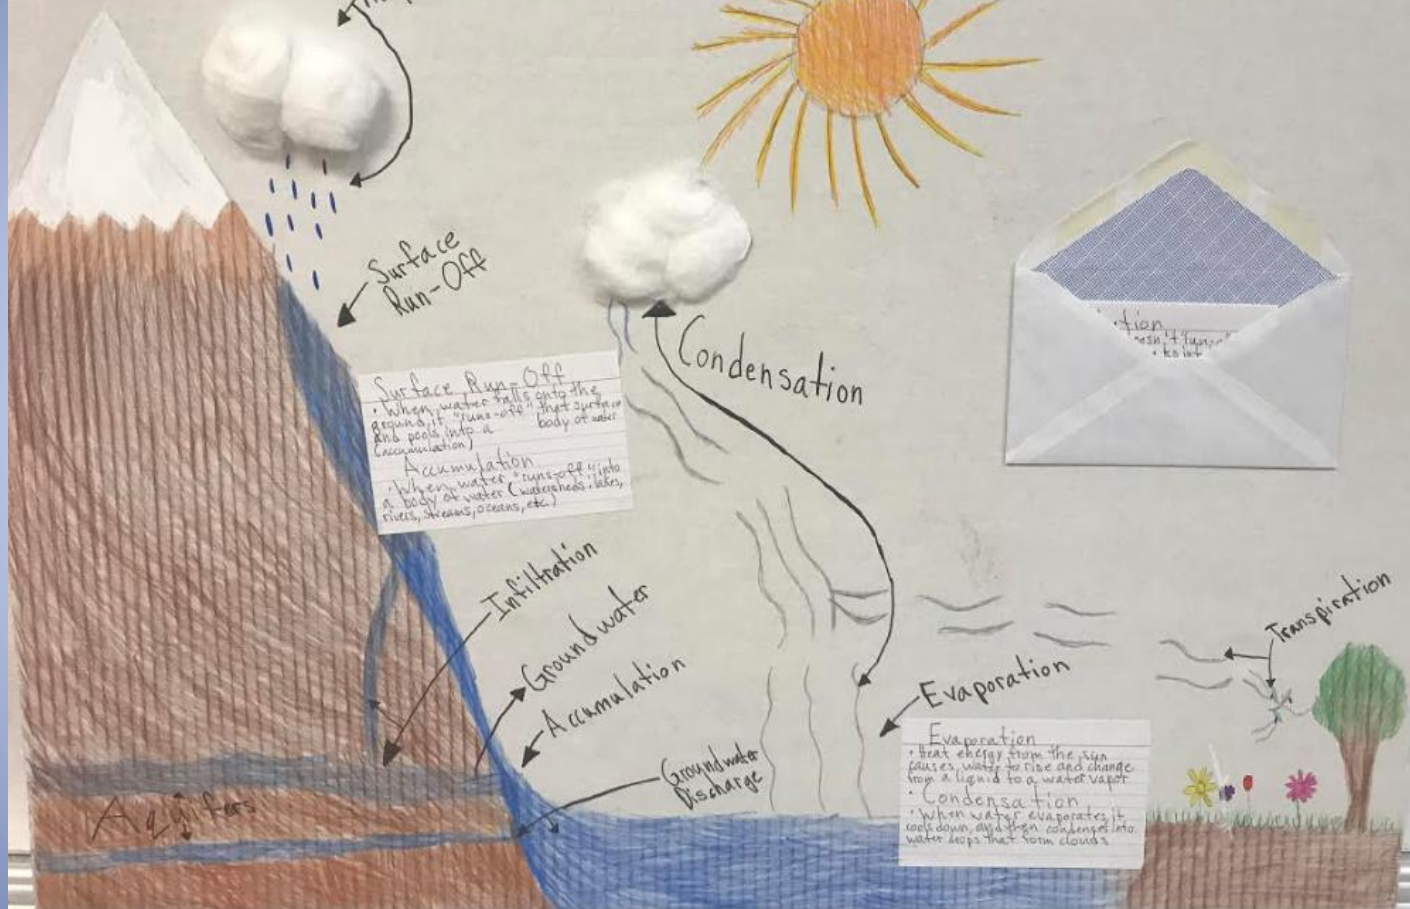 Surface
Run-Off
Condensation
Surface Run-Off
• When water falls onto the
ground, it "runs-off" that surface
and pools into a body of water
(accumulation)
Accumulation
• When water "runs-off" into
a body of water (watersheds, lakes,
rivers, streams, oceans, etc)
Infiltration
Groundwater
Accumulation
Groundwater
Discharge
Aquifers
Evaporation
Transpiration
Evaporation
• Heat energy from the sun
causes water to rise and change
from a liquid to a water vapor
• Condensation
• When water evaporates, it
cools down, and then condenses into
water drops that form clouds